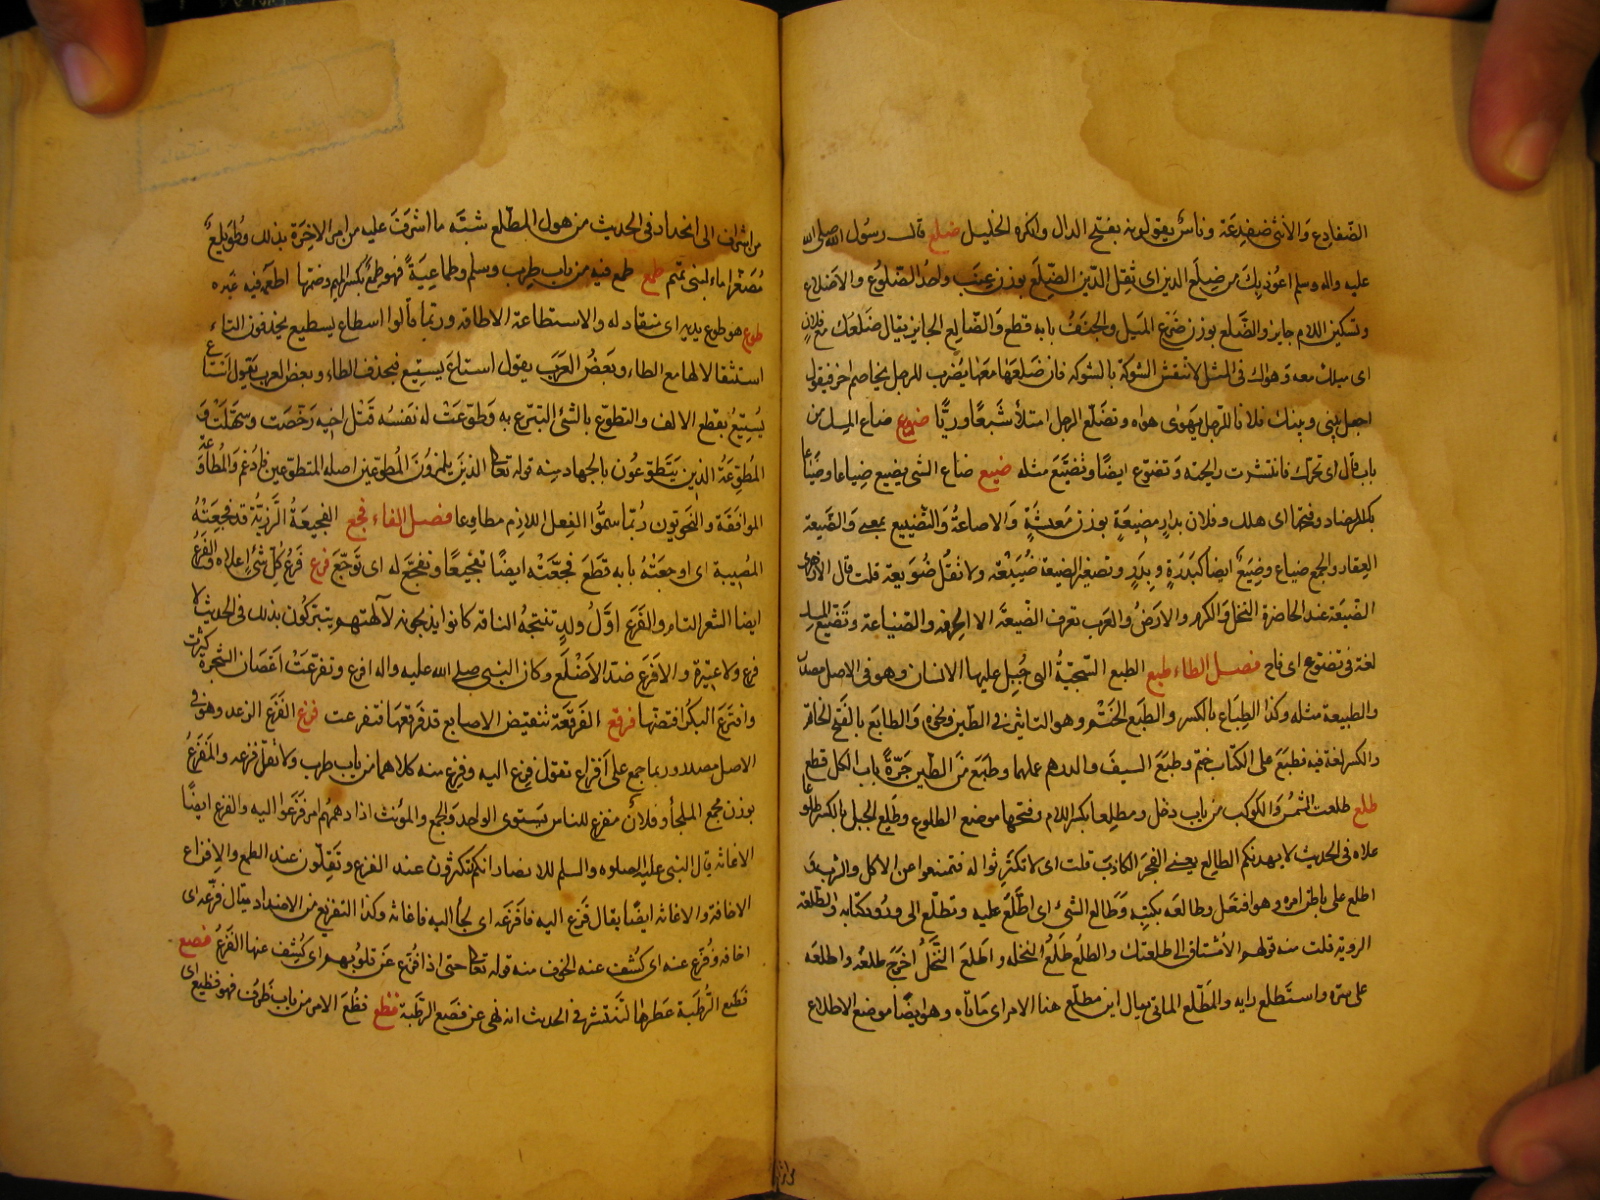 الضفادع والانثى ضفدعة وناس يقولون بفتح الدال وانكره الخليل ضلع قال رسول الله صلى الله
عليه واله وسلم اعوذ بك من ضلع الدين اى ثقل الدين الضلع بوزن عنب واحد الضلوع والاضلاع
وتسكين اللام جايز والضلع بوزن ضرع الميل والجنف بابه قطع والضالع الجايز يقال ضلعك مع فلان
اى ميلك معه وهواك فى المثل لا تنقش الشوكة بالشوكه فان ضلعها معها يضرب للرجل يخاصم اخر فيقول
اجعل بينى وبينك فلانا للرجل يهوى هواه وتضلع الرجل امتلأ شبعا وريا ضوع ضاع المسك من
باب قال اى تحرك فانتشرت رايحته وتضوع ايضا وتضيع مثله ضيع ضاع الشى يضيع ضياعا وضياعا
بكسر الضاد وفتحها اى هلك وفلان بدار مضيعة بوزن معيشة والاضاعة والتضييع بمعنى والضيعة
العقار والجمع ضياع وضيع ايضا كبدرة وبدر وتصغير الضيعة ضييعة ولا تقل ضويعة قلت قال الازهرى
الضيعة عند الحاضرة النخل والكرم والارض والعرب تعرف الضيعة الا الحرفه والصناعة وتضيع المسك
لغة فى تضوع اى فاح فصل الطاء طبع الطبع السجية التى جبل عليها الانسان وهو فى الاصل مصدر
والطبيعة مثله وكذا الطباع بالكسر والطبع الختم وهو التاثير فى الطين ونحوه والطابع بالفتح الخاتم
والكسر لغة فيه وطبع على الكتاب ختم وطبع السيف والدرهم عملهما وطبع من الطين جرة باب الكل قطع
طلع طلعت الشمس والكوكب من باب دخل ومطلعا بكسر اللام وفتحها موضع الطلوع وطلع الجبل بالكسر طلوعا
علاه فى الحديث لا يهدنكم الطالع يعنى الفجر الكاذب قلت اى لا تكترثوا له فتمنعوا عن الاكل والشرب و
اطلع على باطن امره وهو افتعل وطالعه بكتبه وطالع الشئ اى اطلع عليه وتطلع الى ورود كتابه والطلعة
الرؤية قلت منه قولهم الاشتاق الى طلعتك والطلع طلع النخله واطلع النخل اخرج طلعه واطلعه
على سره واستطلع رايه والمطلع الماتى يقال اين مطلع هذا الامر اى ماتاه وهو ايضا موضع الاطلاع
من اشراف الى انحدار فى الحديث من هول المطلع شبه ما اشرفت عليه من امر الاخرة بذلك وطويلع
مصغرا ماء لبنى تميم طمع طمع فيه من باب طرب وسلم وطماعية فهو طمع بكسر الميم وضمها اطمعه فيه غيره
طوع هو طوع يديه اى منقاد له والاستطاعة الاطاقه وربما قالوا اسطاع يسطيع يحذفون التاء
استثقالا لها مع الطاء وبعض العرب يقول استاع يستيع فيحذف الطاء وبعض العرب يقول اسطاع
يسطيع بقطع الالف والتطوع بالشئ التبرع به وطوعت له نفسه قتل اخيه رخصت وسهلت و
المطوعة الذين يتطوعون بالجهاد منه قوله تعالى الذين يلمزون المطوعين اصله المتطوعين فادغم والمطاوعة
الموافقة والنحويون ربما سموا الفعل اللازم مطاوعا فصل الفاء فجع الفجيعة الرزية قد فجعته
المصيبة اى اوجعته بابه قطع فجعته ايضا تفجيعا وتفجع له اى توجع فرع فرع كل شئ اعلاه والفرع
ايضا الشعر التام والفرع اول ولد تنتجه الناقه كانوا يذبحونه لآلهتهم يتبركون بذلك فى الحديث لا
فرع ولا عتيرة والافرع ضد الاصلع وكان النبى صلى الله عليه واله افرع وتفرعت اغصان الشجرة كثرت
وافترع البكر افتضها فرقع الفرقعة تنقيض الاصابع قد فرقعها فتفرقعت فزع الفزع الذعر وهو فى
الاصل مصدر وربما جمع على افزاع تقول فزع اليه وفزع منه كلاهما من باب طرب ولا تقل فزعه والمفزع
بوزن مجمع الملجأ وفلان مفزع للناس يستوى الواحد والجمع والمؤنث اذا دهمهم امر فزعوا اليه والفزع ايضا
الاغاثه قال النبى عليه الصلوة والسلم للانصار انكم لتكثرون عند الفزع وتقلون عند الطمع والافزاع
الاخافة والاغاثه ايضا يقال فزع اليه فافزعه اى لجأ اليه فاغاثه وكذا التفزيع من الاضداد يقال فزعه اى
اخافه وفزع عنه اى كشف عنه الخوف منه قوله تعالى حتى اذا فزع عن قلوبهم اى كشف عنها الفزع فصع
فصع الرطبة عصرها لتنقشر فى الحديث انه نهى عن فصع الرطبة فظع فظع الامر من باب ظرف فهو فظيع اى